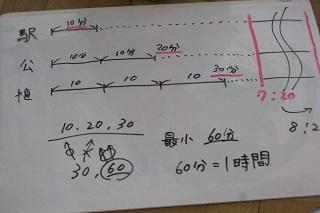 駅 10分
公 10分 10分 20分
植 10 10 10 30分
7:20
8:2
10.20.30
30.60
最小 60分
60分=1時間